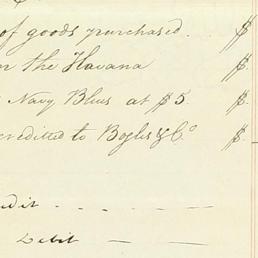 of goods purchased. $
the Havana $
Navy Blues at $5 $.
credited to Bogles & Co $.
edit . - - - -
Debit — —